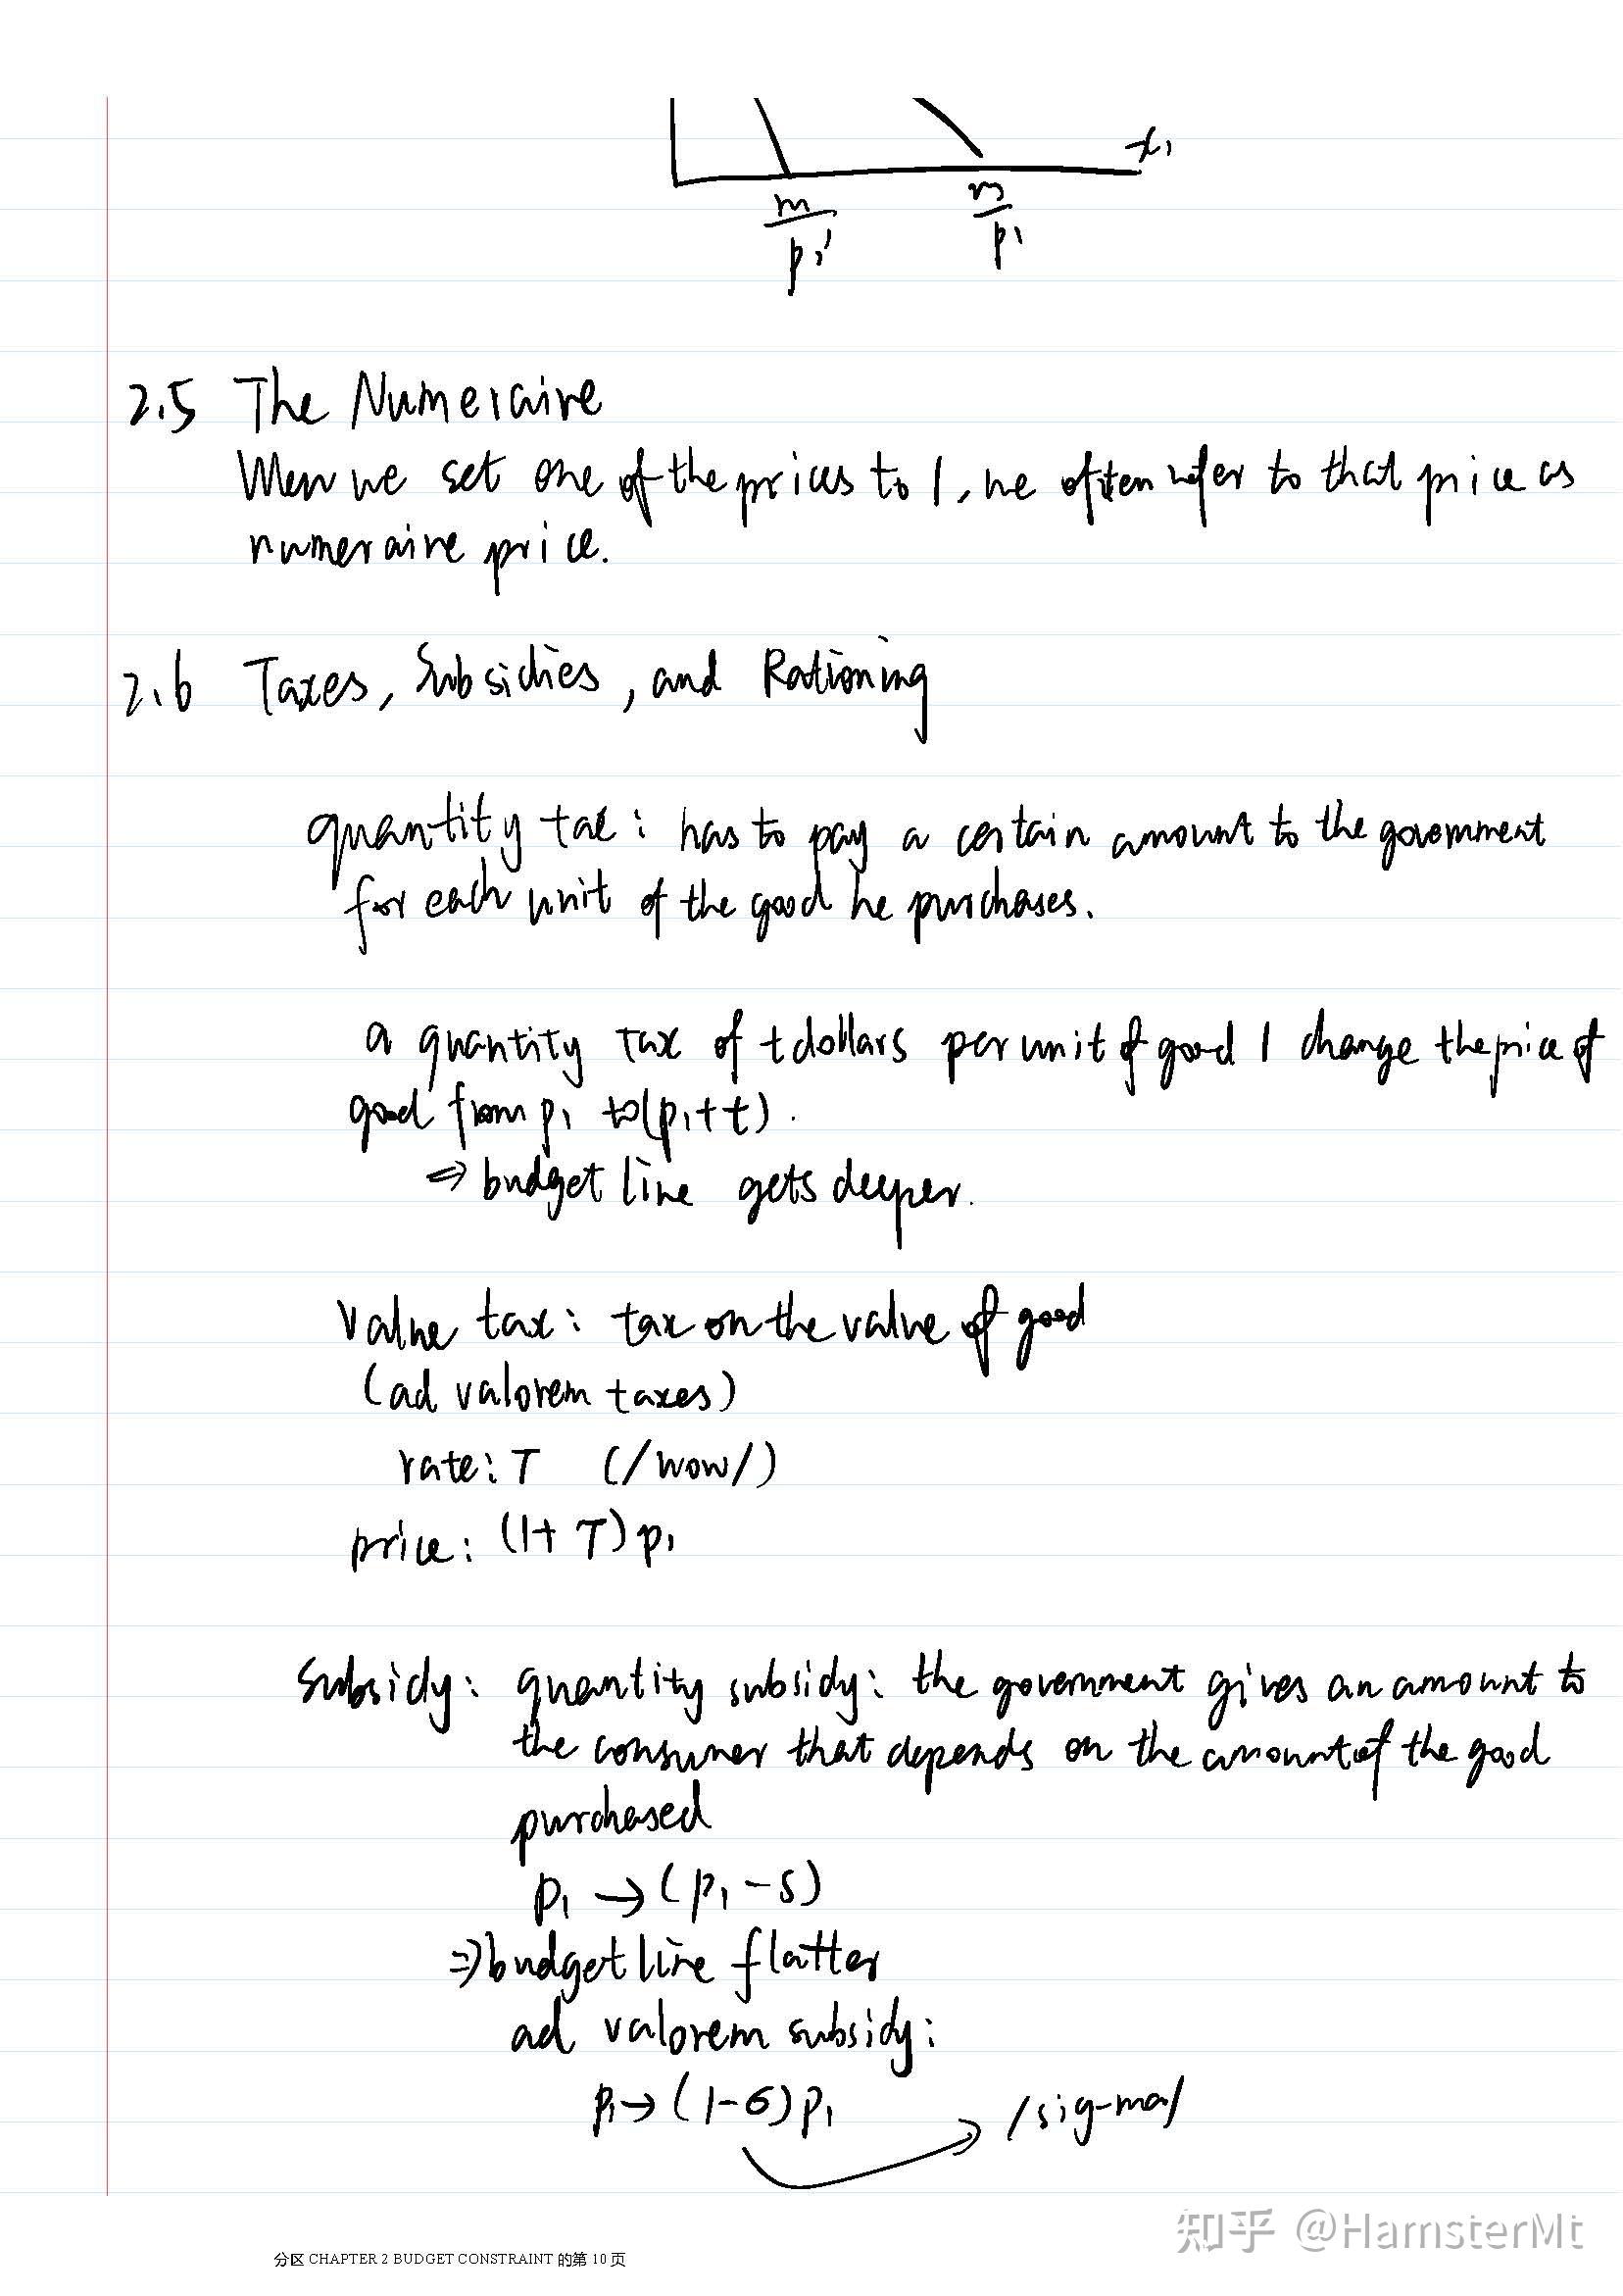 x₁
m/p₁' m/p₁
2.5 The Numeraire
When we set one of the prices to 1, we often refer to that price as
numeraire price.
2.6 Taxes, Subsidies, and Rationing
quantity tax: has to pay a certain amount to the government
for each unit of the good he purchases.
a quantity tax of t dollars per unit of good 1 change the price of
good from p₁ to (p₁+t).
⇒ budget line gets deeper.
Value tax: tax on the value of good
(ad valorem taxes)
rate: τ (/wow/)
price: (1+τ)p₁
Subsidy: quantity subsidy: the government gives an amount to
the consumer that depends on the amount of the good
purchased
p₁ → (p₁-s)
⇒ budget line flatter
ad valorem subsidy:
p₁ → (1-σ)p₁ /sig-ma/
知乎 @HamsterMt
分区 CHAPTER 2 BUDGET CONSTRAINT 的第 10 页